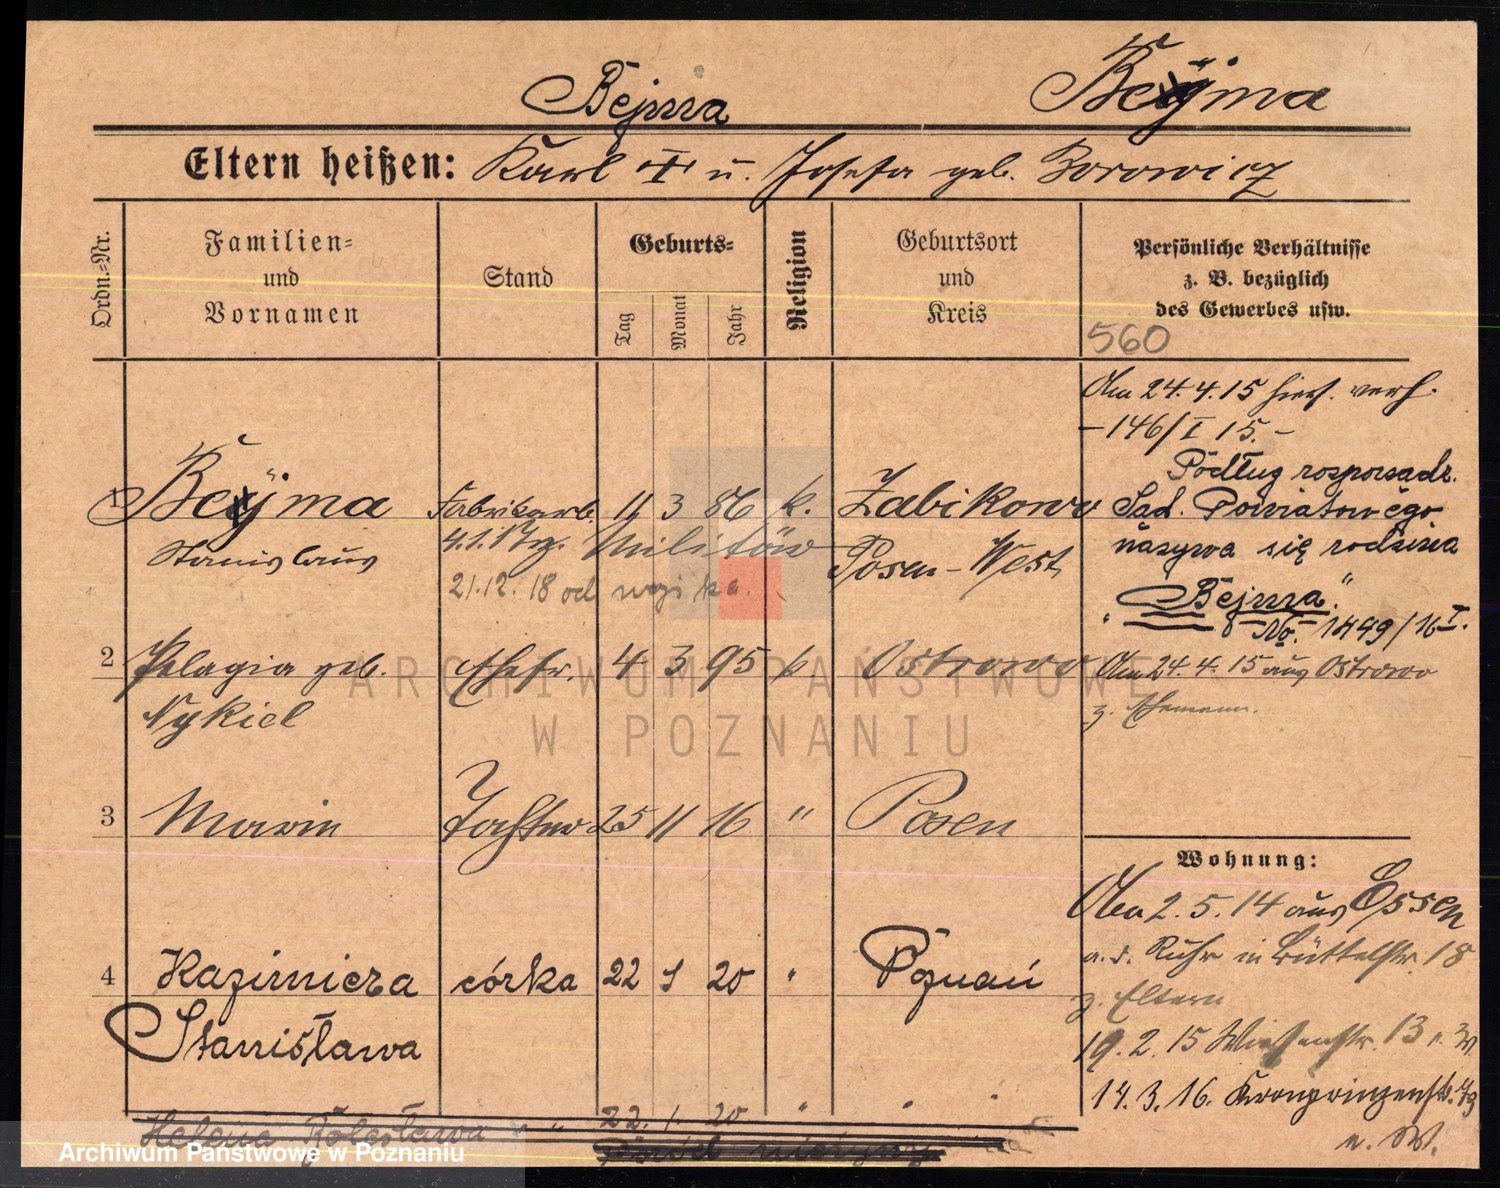 Bejma Beyma
Eltern heißen: Karl † u. Josefa geb. Borowicz
Ordn.=Nr.
Familien=
und
Vornamen
Stand
Geburts=
Tag
Monat
Jahr
Religion
Geburtsort
und
Kreis
Persönliche Verhältnisse
z. B. bezüglich
des Gewerbes usw.
560
1 Beyma Fabrikarb. 11 3 86 k. Zabikowo
Stanislaus
Militär Posen-West
21.12.18 od
2 Pelagia geb. Ehefr. 4 3 95 k. Ostrowo
Nykiel
3 Marie Tochter 25 11 16 " Posen
4 Kazimiera córka 22 1 20 " Poznań
Stanisława
Helena Bolesława " " 22. 1. 20 " " "
Am 24.4.15 hier verh.
-146/I 15.-
Podług rosporsadz.
Sąd. Powiatowego
nasywa się rodzina
"Bejma"
No. 1449/16 I.
Am 24.4.15 aus Ostrowo
z. Ehemann.
Wohnung:
Am 2.5.14 aus Essen
a.d. Ruhr in Büttelstr. 18
z. Eltern
19.2.15 Wiesenstr. 13
14.3.16. Kronprinzenstr.
ARCHIWUM PAŃSTWOWE
W POZNANIU
Archiwum Państwowe w Poznaniu